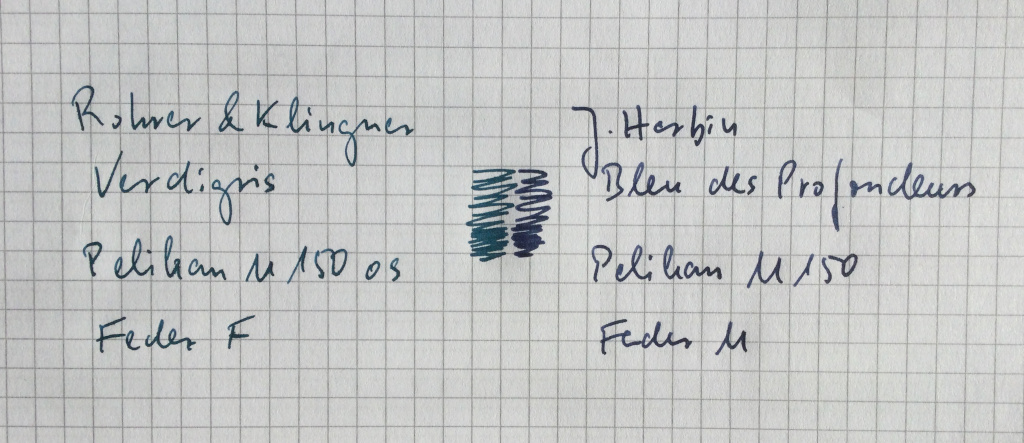 Rohrer & Klingner
Verdigris
Pelikan M 150 OS
Feder F
J. Herbin
Bleu des Profondeurs
Pelikan M 150
Feder M